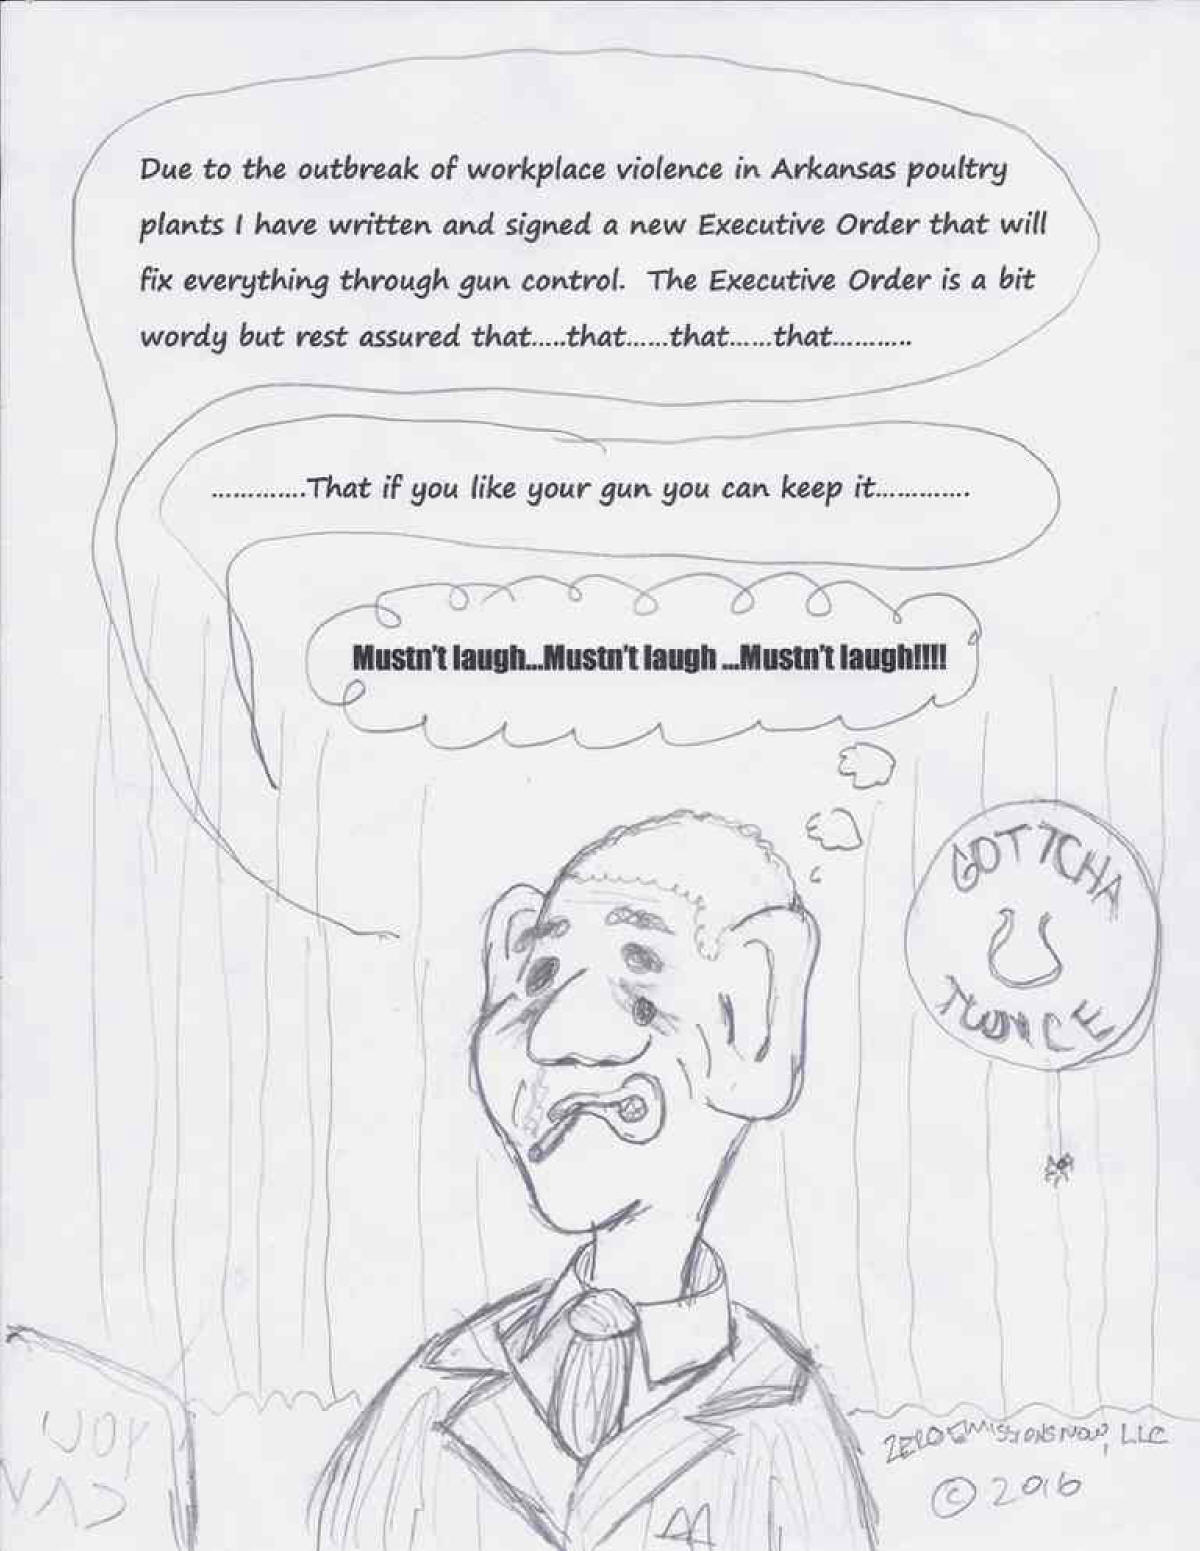 Due to the outbreak of workplace violence in Arkansas poultry
plants I have written and signed a new Executive Order that will
fix everything through gun control. The Executive Order is a bit
wordy but rest assured that.....that......that......that...........
.............That if you like your gun you can keep it.............
Mustn't laugh...Mustn't laugh ...Mustn't laugh!!!!
GOTTCHA
TWICE
ZEROEMISSIONSNOW, LLC
© 2016